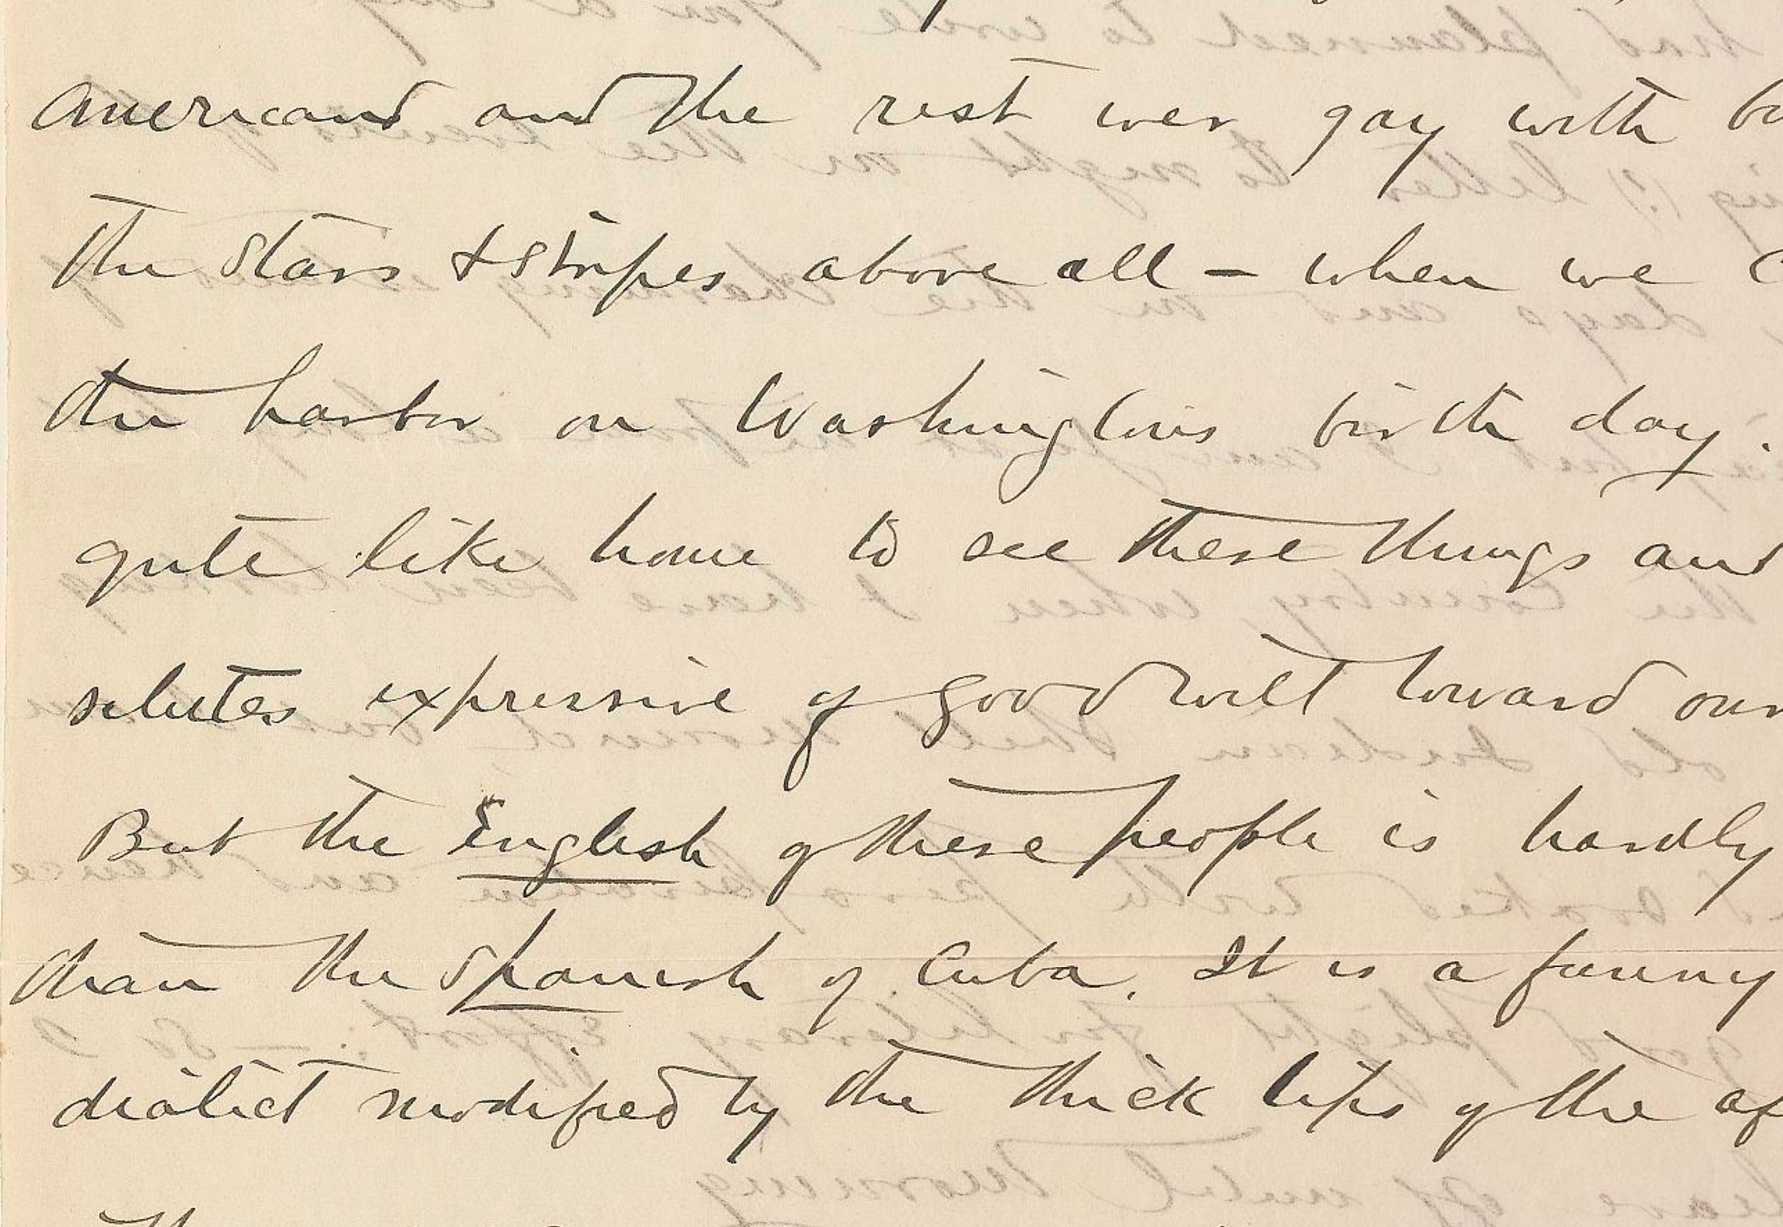 Americand and the rest wer gay with
the Stars & Stripes above all – when we
the harbor on Washingtons birth day.
quite like home to see these things and
salutes expressive of good will toward our
But the English of these people is hardly
than the Spanish of Cuba. It is a funny
dialect modified by the thick lips of the